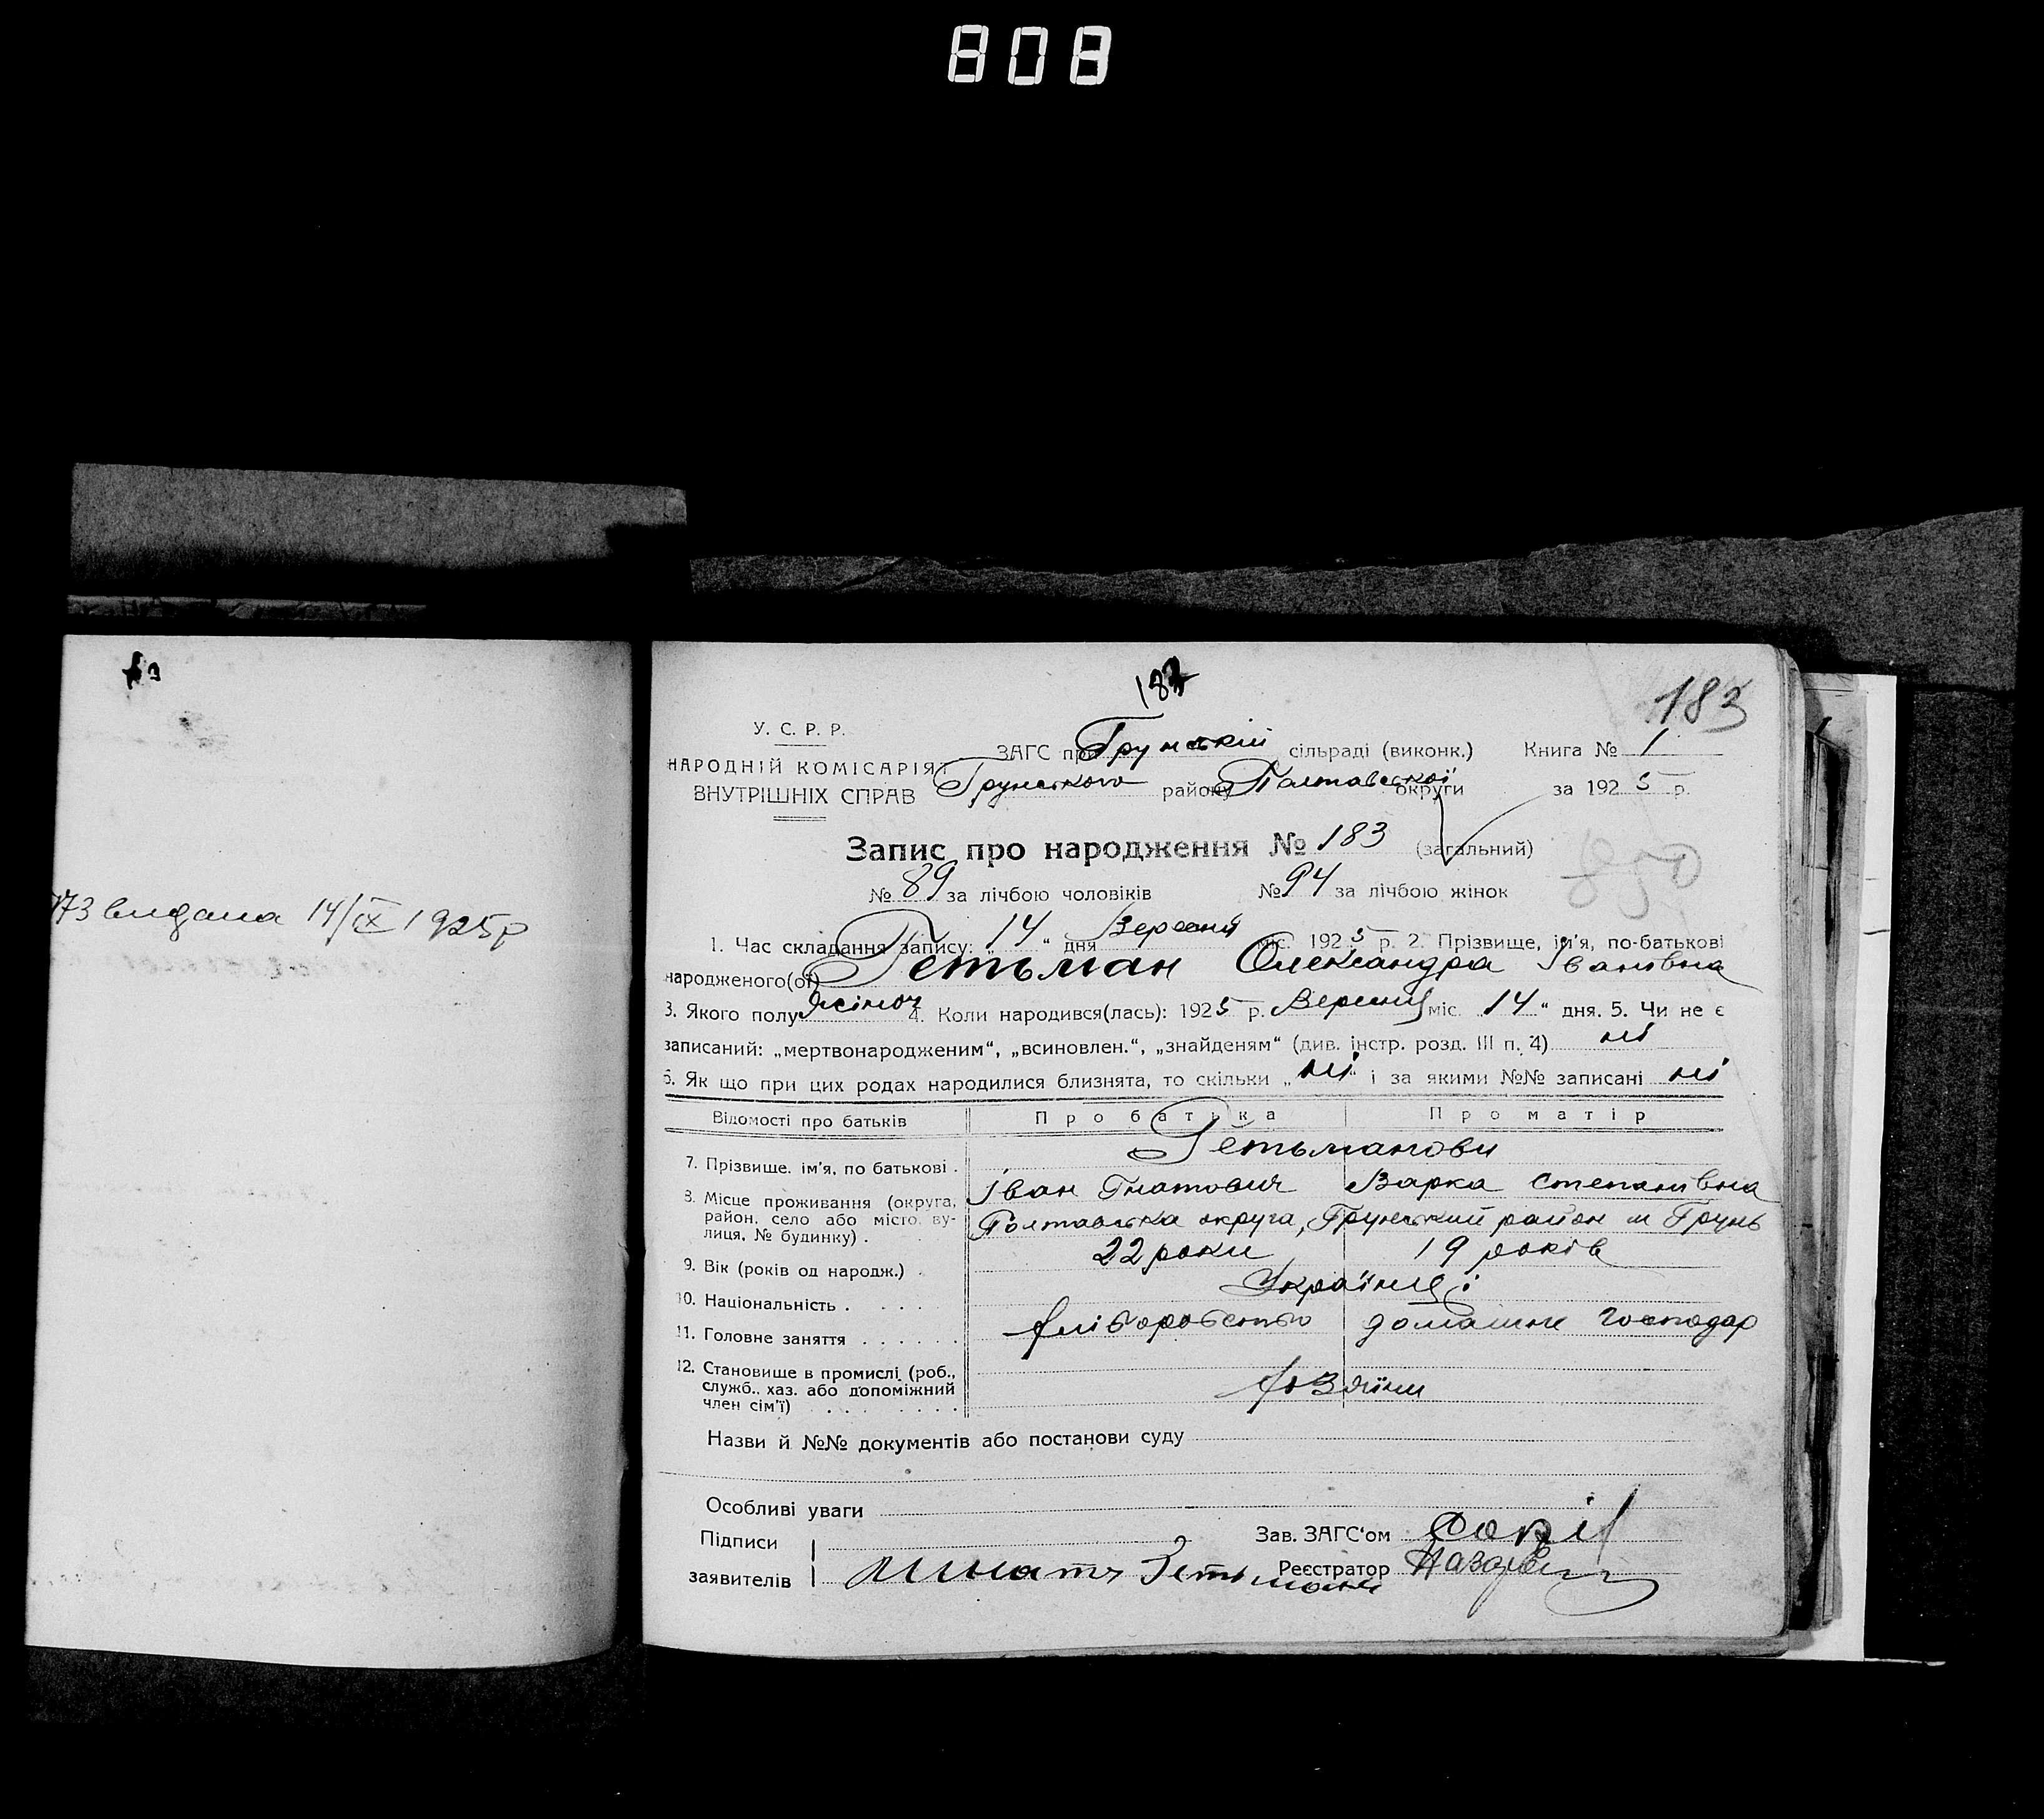 808
183
183
173 видана 14/IX 1925р
У. С. Р. Р.
НАРОДНІЙ КОМІСАРІЯТ
ВНУТРІШНІХ СПРАВ
ЗАГС при Грунській сільраді (виконк.) Книга № 1
Грунського району Полтавської округи за 1925 р.
Запис про народження № 183 (загальний)
№ 89 за лічбою чоловіків № 94 за лічбою жінок
850
1. Час складання запису: „14“ дня Вересня міс. 1925 р. 2. Прізвище, ім'я, по-батькові
народженого(ої) Гетьман Олександра Івановна
3. Якого полу жіноч 4. Коли народився(лась): 1925 р. Вересня міс. 14“ дня. 5. Чи не є
записаний: „мертвонародженим“, „всиновлен.“, „знайденям“ (див. інстр. розд. III п. 4) ні
6. Як що при цих родах народилися близнята, то скільки „ні“ і за якими №№ записані ні
Відомості про батьків Про батька Про матір
7. Прізвище, ім'я, по батькові . Гетьманови
Іван Гнатович Варка Степанівна
8. Місце проживання (округа, район, село або місто, вулиця, № будинку) . Полтавська округа, Грунський район м Грунь
9. Вік (років од народж.) . 22 роки 19 років
10. Національність . . . . . Українці
11. Головне заняття . . . . . . хліборобство домашнє господар
12. Становище в промислі (роб., служб., хаз. або допоміжний член сім'ї) . . . . . . . . хозяїни
Назви й №№ документів або постанови суду
Особливі уваги
Підписи
заявителів Гетьман
Зав. ЗАГС'ом
Реєстратор